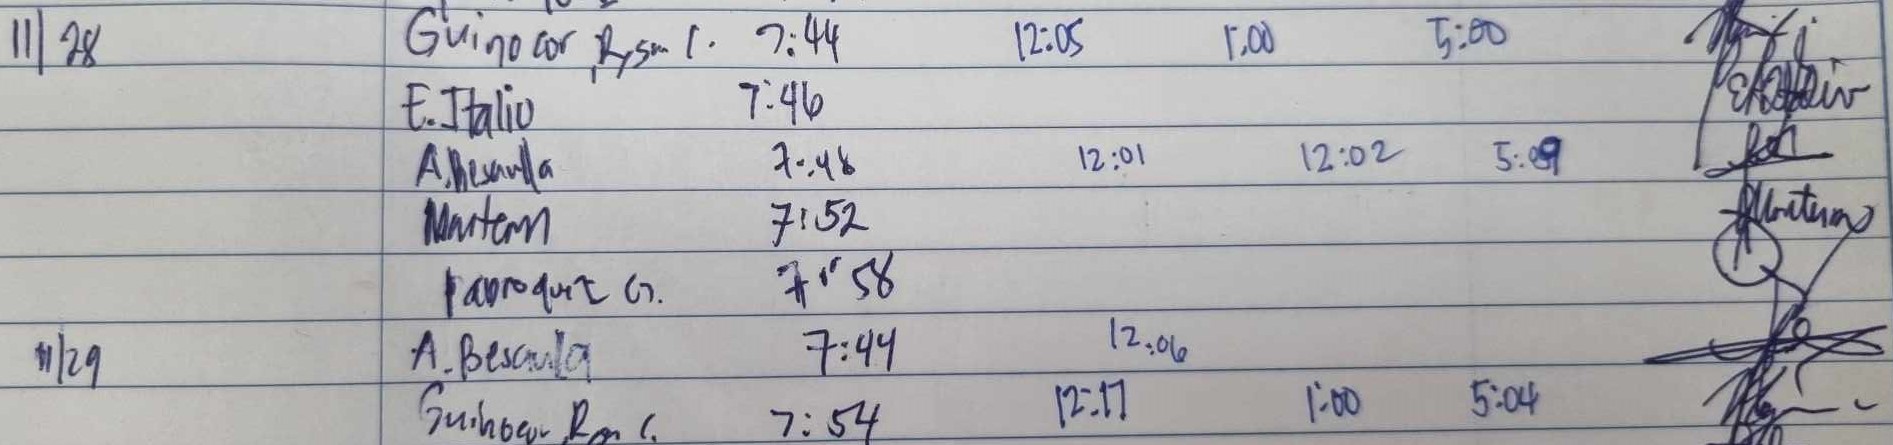 11/28 Guinocor, Rysm C. 7:44 12:05 1:00 5:00
E. Italio 7:46
A. Besavlla 7:48 12:01 12:02 5:09
7:52
G. 7:58
11/29 A. Besavlla 7:44 12:06
Guinocor, C. 7:54 12:17 1:00 5:04